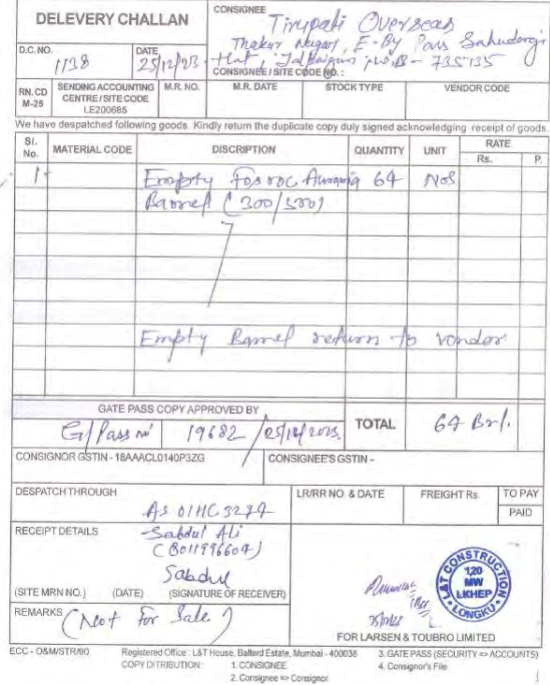 DELEVERY CHALLAN
CONSIGNEE
Tirupati Overseas
Thakur Nagar, E-By Pass Sahudangi
Hat, Jalpaiguri, W.B - 735135
D.C. NO. 1138
DATE 25/12/23
CONSIGNEE / SITE CODE NO. :
RN. CD M-25
SENDING ACCOUNTING CENTRE / SITE CODE LE200685
M.R. NO.
M.R. DATE
STOCK TYPE
VENDOR CODE
We have despatched following goods. Kindly return the duplicate copy duly signed acknowledging receipt of goods.
Sl. No. MATERIAL CODE DISCRIPTION QUANTITY UNIT RATE
Rs. P.
1 Empty Fosroc 64 Nos
Barrel (300/500)
Empty Barrel return to vendor
GATE PASS COPY APPROVED BY
G/Pass no 19682 / 25/12/2023
TOTAL 64 Brl.
CONSIGNOR GSTIN - 18AAACL0140P3ZG
CONSIGNEE'S GSTIN -
DESPATCH THROUGH
AS 01HC 3274
LR/RR NO. & DATE
FREIGHT Rs.
TO PAY
PAID
RECEIPT DETAILS
Sabdul Ali
(8011996604)
Sabdul
(SITE MRN NO.) (DATE) (SIGNATURE OF RECEIVER)
L&T CONSTRUCTION
120
MW
LKHEP
LONGKU
REMARKS (Not For Sale)
FOR LARSEN & TOUBRO LIMITED
ECC - O&M/STR/90
Registered Office : L&T House, Ballard Estate, Mumbai - 400038
COPY DITRIBUTION : 1. CONSIGNEE
2. Consignee => Consignor
3. GATE PASS (SECURITY => ACCOUNTS)
4. Consignor's File